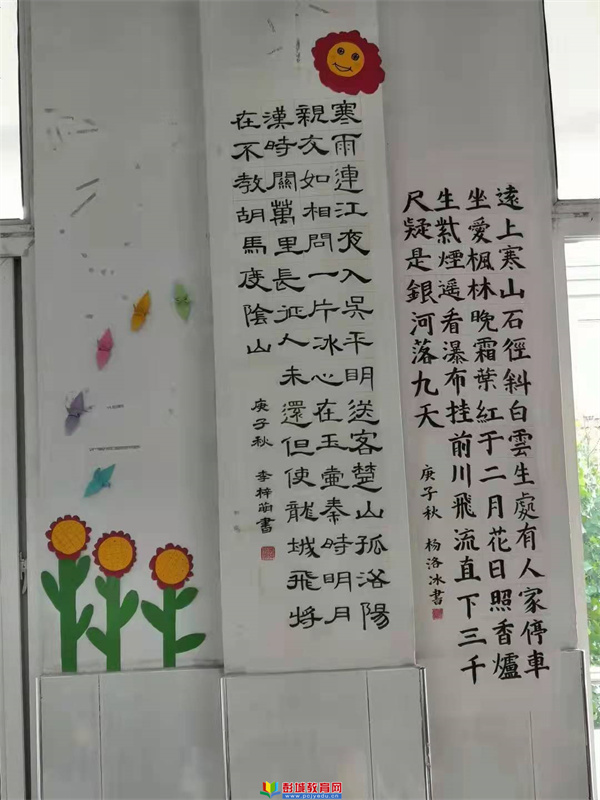 遠上寒山石徑斜白雲生處有人家停車
坐愛楓林晚霜葉紅于二月花日照香爐
生紫煙遥看瀑布挂前川飛流直下三千
尺疑是銀河落九天
庚子秋 杨洛冰書
寒雨連江夜入吳平明送客楚山孤洛陽
親友如相問一片冰心在玉壺秦時明月
漢時關萬里長征人未還但使龍城飛將
在不教胡馬度陰山
庚子秋 李梓萌書
彭城教育网
www.pcjyedu.cn